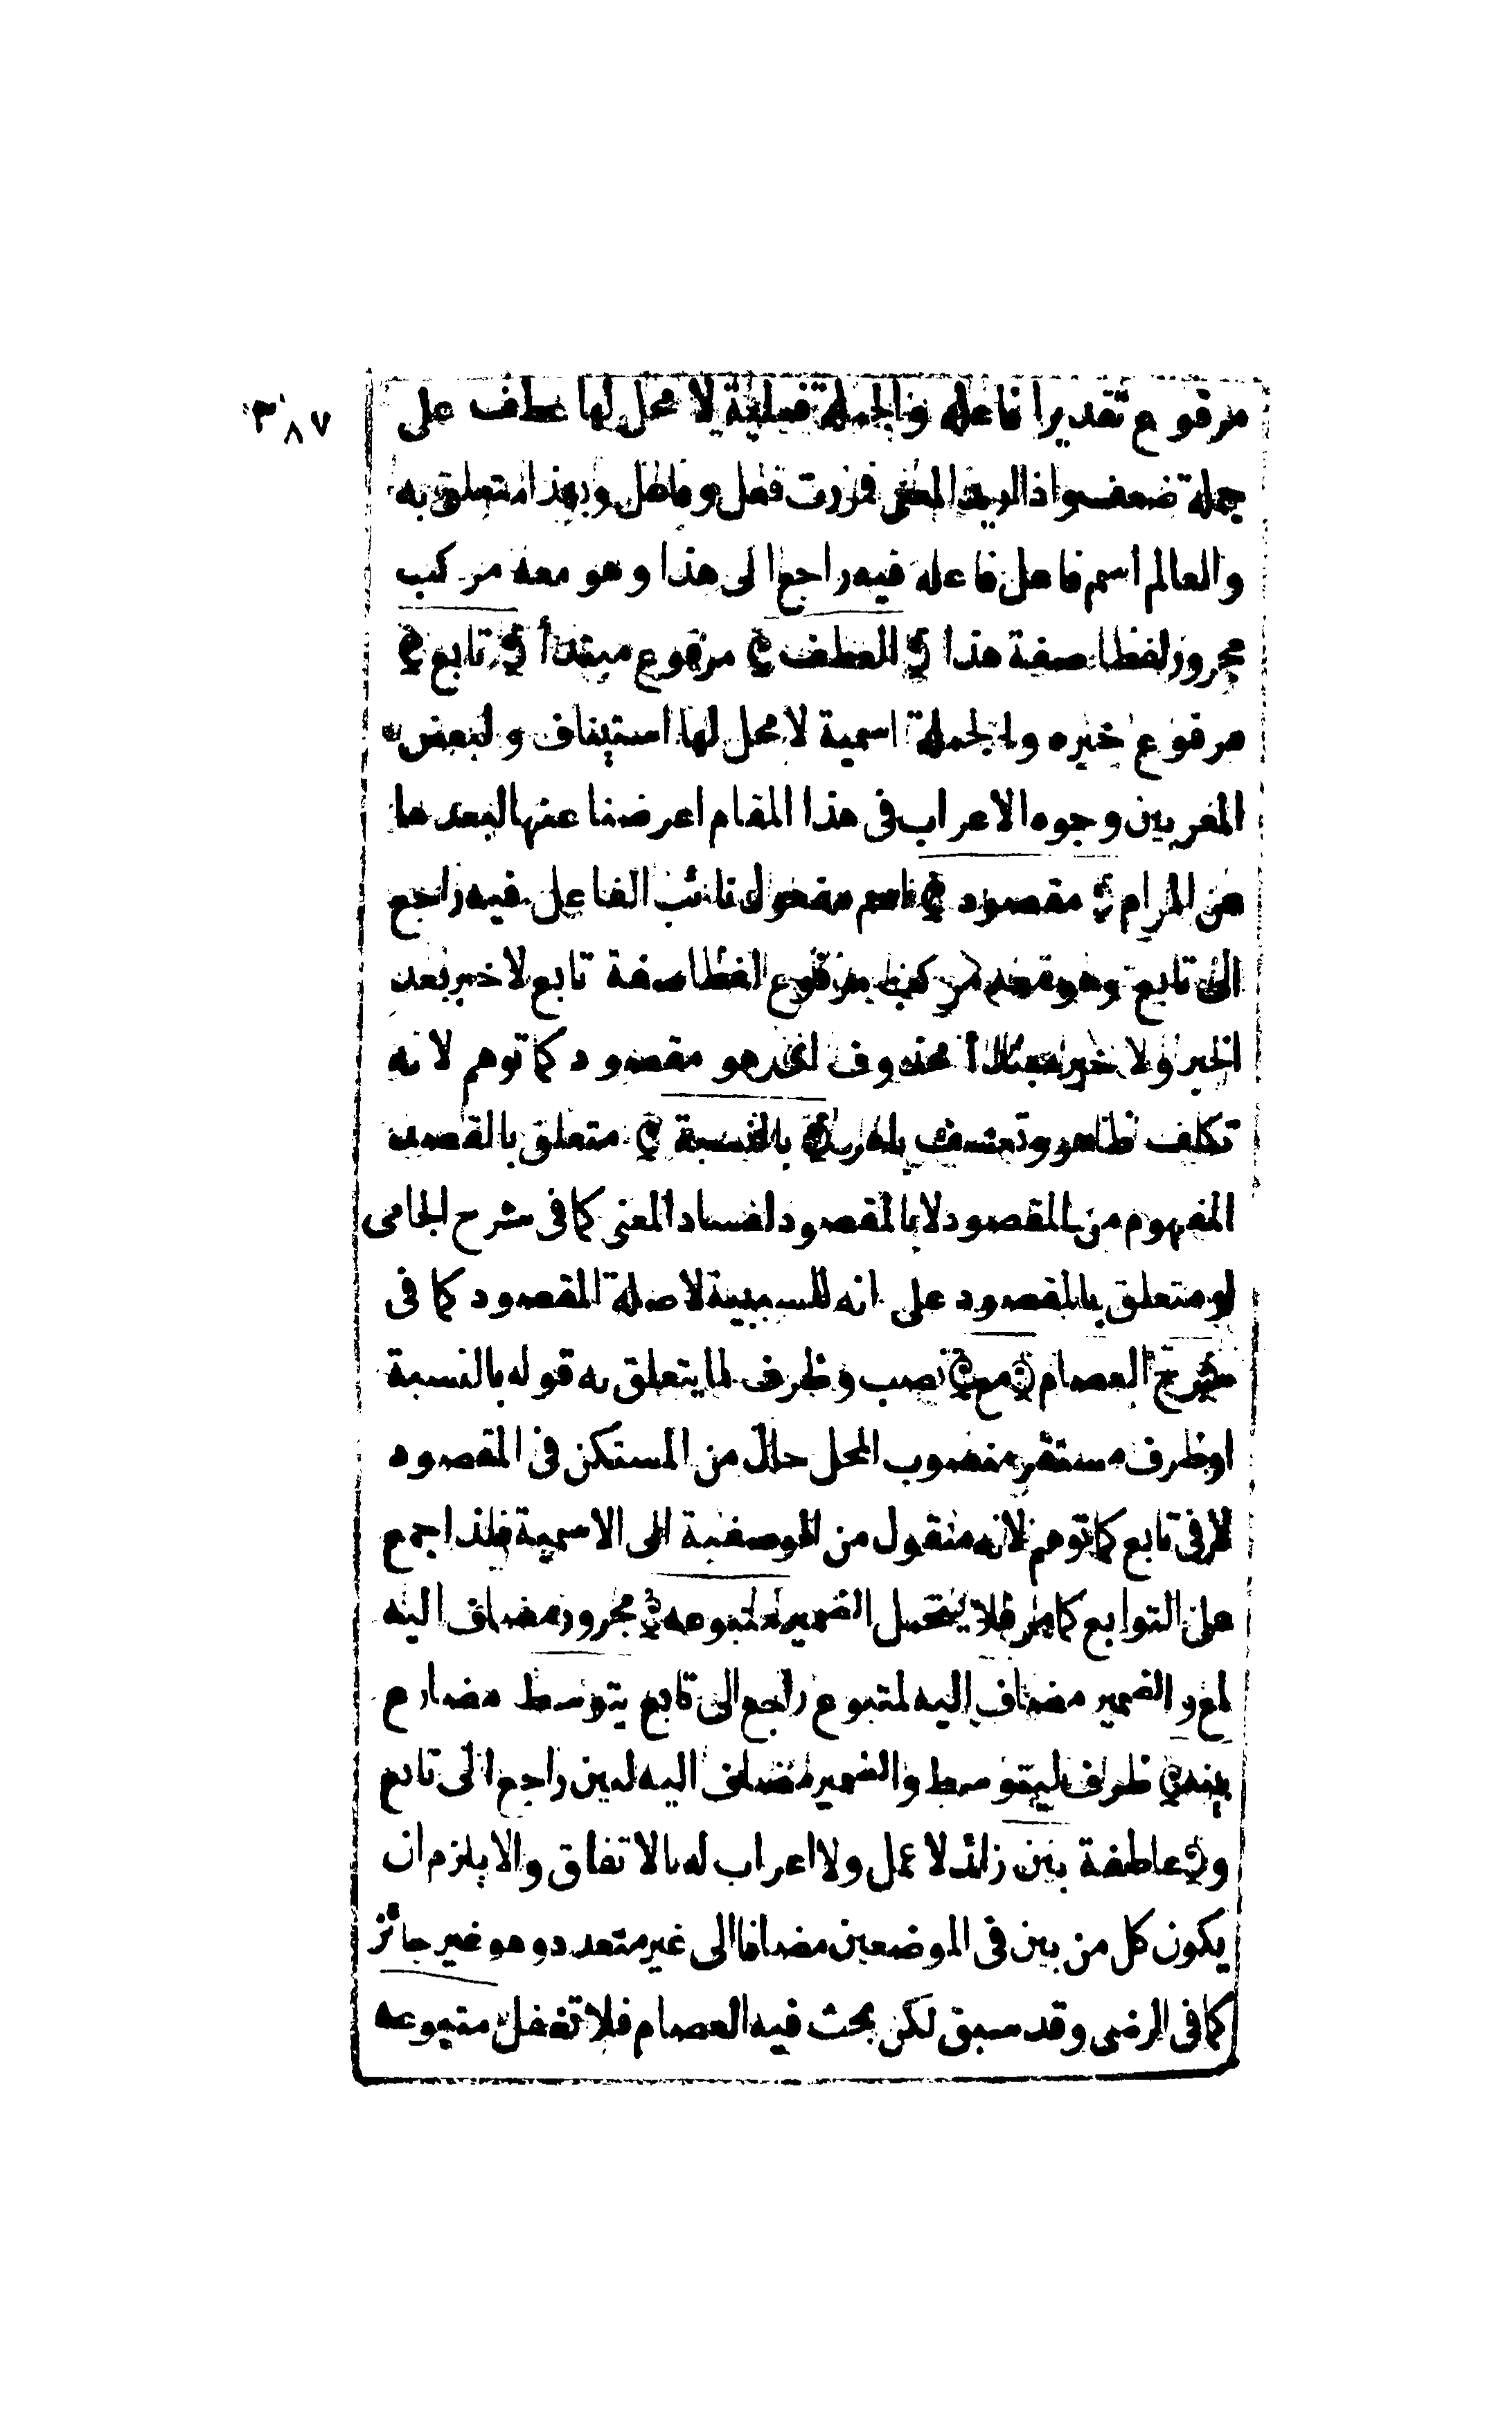 ٣٨٧
مرفوع تقديرا فاعله والجملة فعلية لا محل لها عطف على
جملة ضعف واذا اريد المعنى فزرت فعل وفاعل وبهذا متعلق به
والعالم اسم فاعل فاعله فيه راجع الى هذا وهو معه مركب
مجرور لفظا صفة هذا ﴿ العطف ﴾ مرفوع مبتدأ ﴿ تابع ﴾
مرفوع خبره والجملة اسمية لا محل لها استيناف ولبعض
المعربين وجوه الاعراب فى هذا المقام اعرضنا عنها لبعدها
عن المرام ﴿ مقصود ﴾ اسم مفعول نائب الفاعل فيه راجع
الى تابع وهو معه مركب مرفوع لفظا صفة تابع لا خبر بعد
الخبر ولا خبر مبتدأ محذوف اى هو مقصود كما توهم لانه
تكلف ظاهر وتعسف باهر ﴿ بالنسبة ﴾ متعلق بالقصد
المفهوم من المقصود لا بالمقصود لفساد المعنى كما فى شرح الجامى
او متعلق بالمقصود على انه للسببية لا صلة المقصود كما فى
شرح العصام ﴿ مع ﴾ نصب وظرف لما يتعلق به قوله بالنسبة
او ظرف مستقر منصوب المحل حال من المستكن فى المقصود
لا فى تابع كما توهم لانه منقول من الوصفية الى الاسمية فلذا جمع
على التوابع كما مر فلا يتحمل الضمير ﴿ متبوعه ﴾ مجرور مضاف اليه
لمع والضمير مضاف اليه لمتبوع راجع الى تابع يتوسط مضارع
بينه ﴾ ظرف ليتوسط والضمير مضاف اليه لبين راجع الى تابع
و﴾ عاطفة بين زائد لا عمل ولا اعراب له بالاتفاق والا يلزم ان
يكون كل من بين فى الموضعين مضافا الى غير متعدد وهو غير جائز
كما فى الرضى وقد سبق لكن بحث فيه العصام فلا تغفل متبوعه